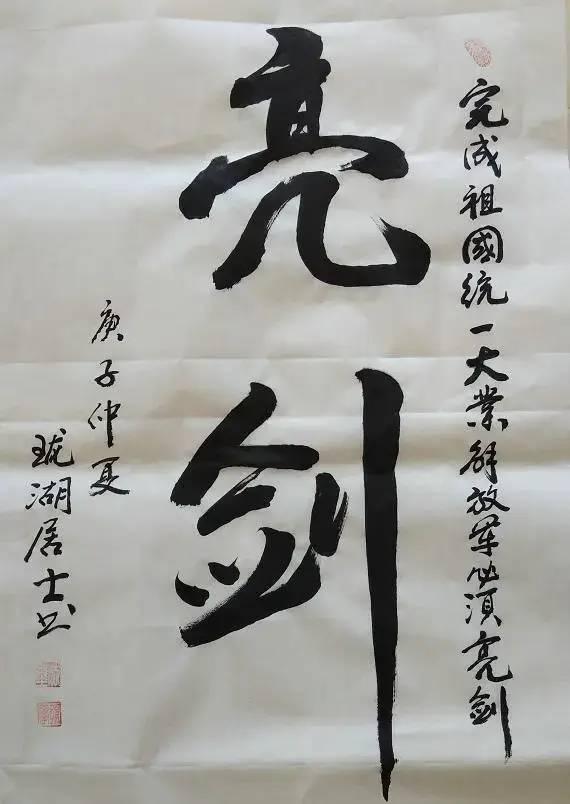 完成祖國統一大業解放軍必須亮劍
亮劍
庚子仲夏
瓏湖居士书